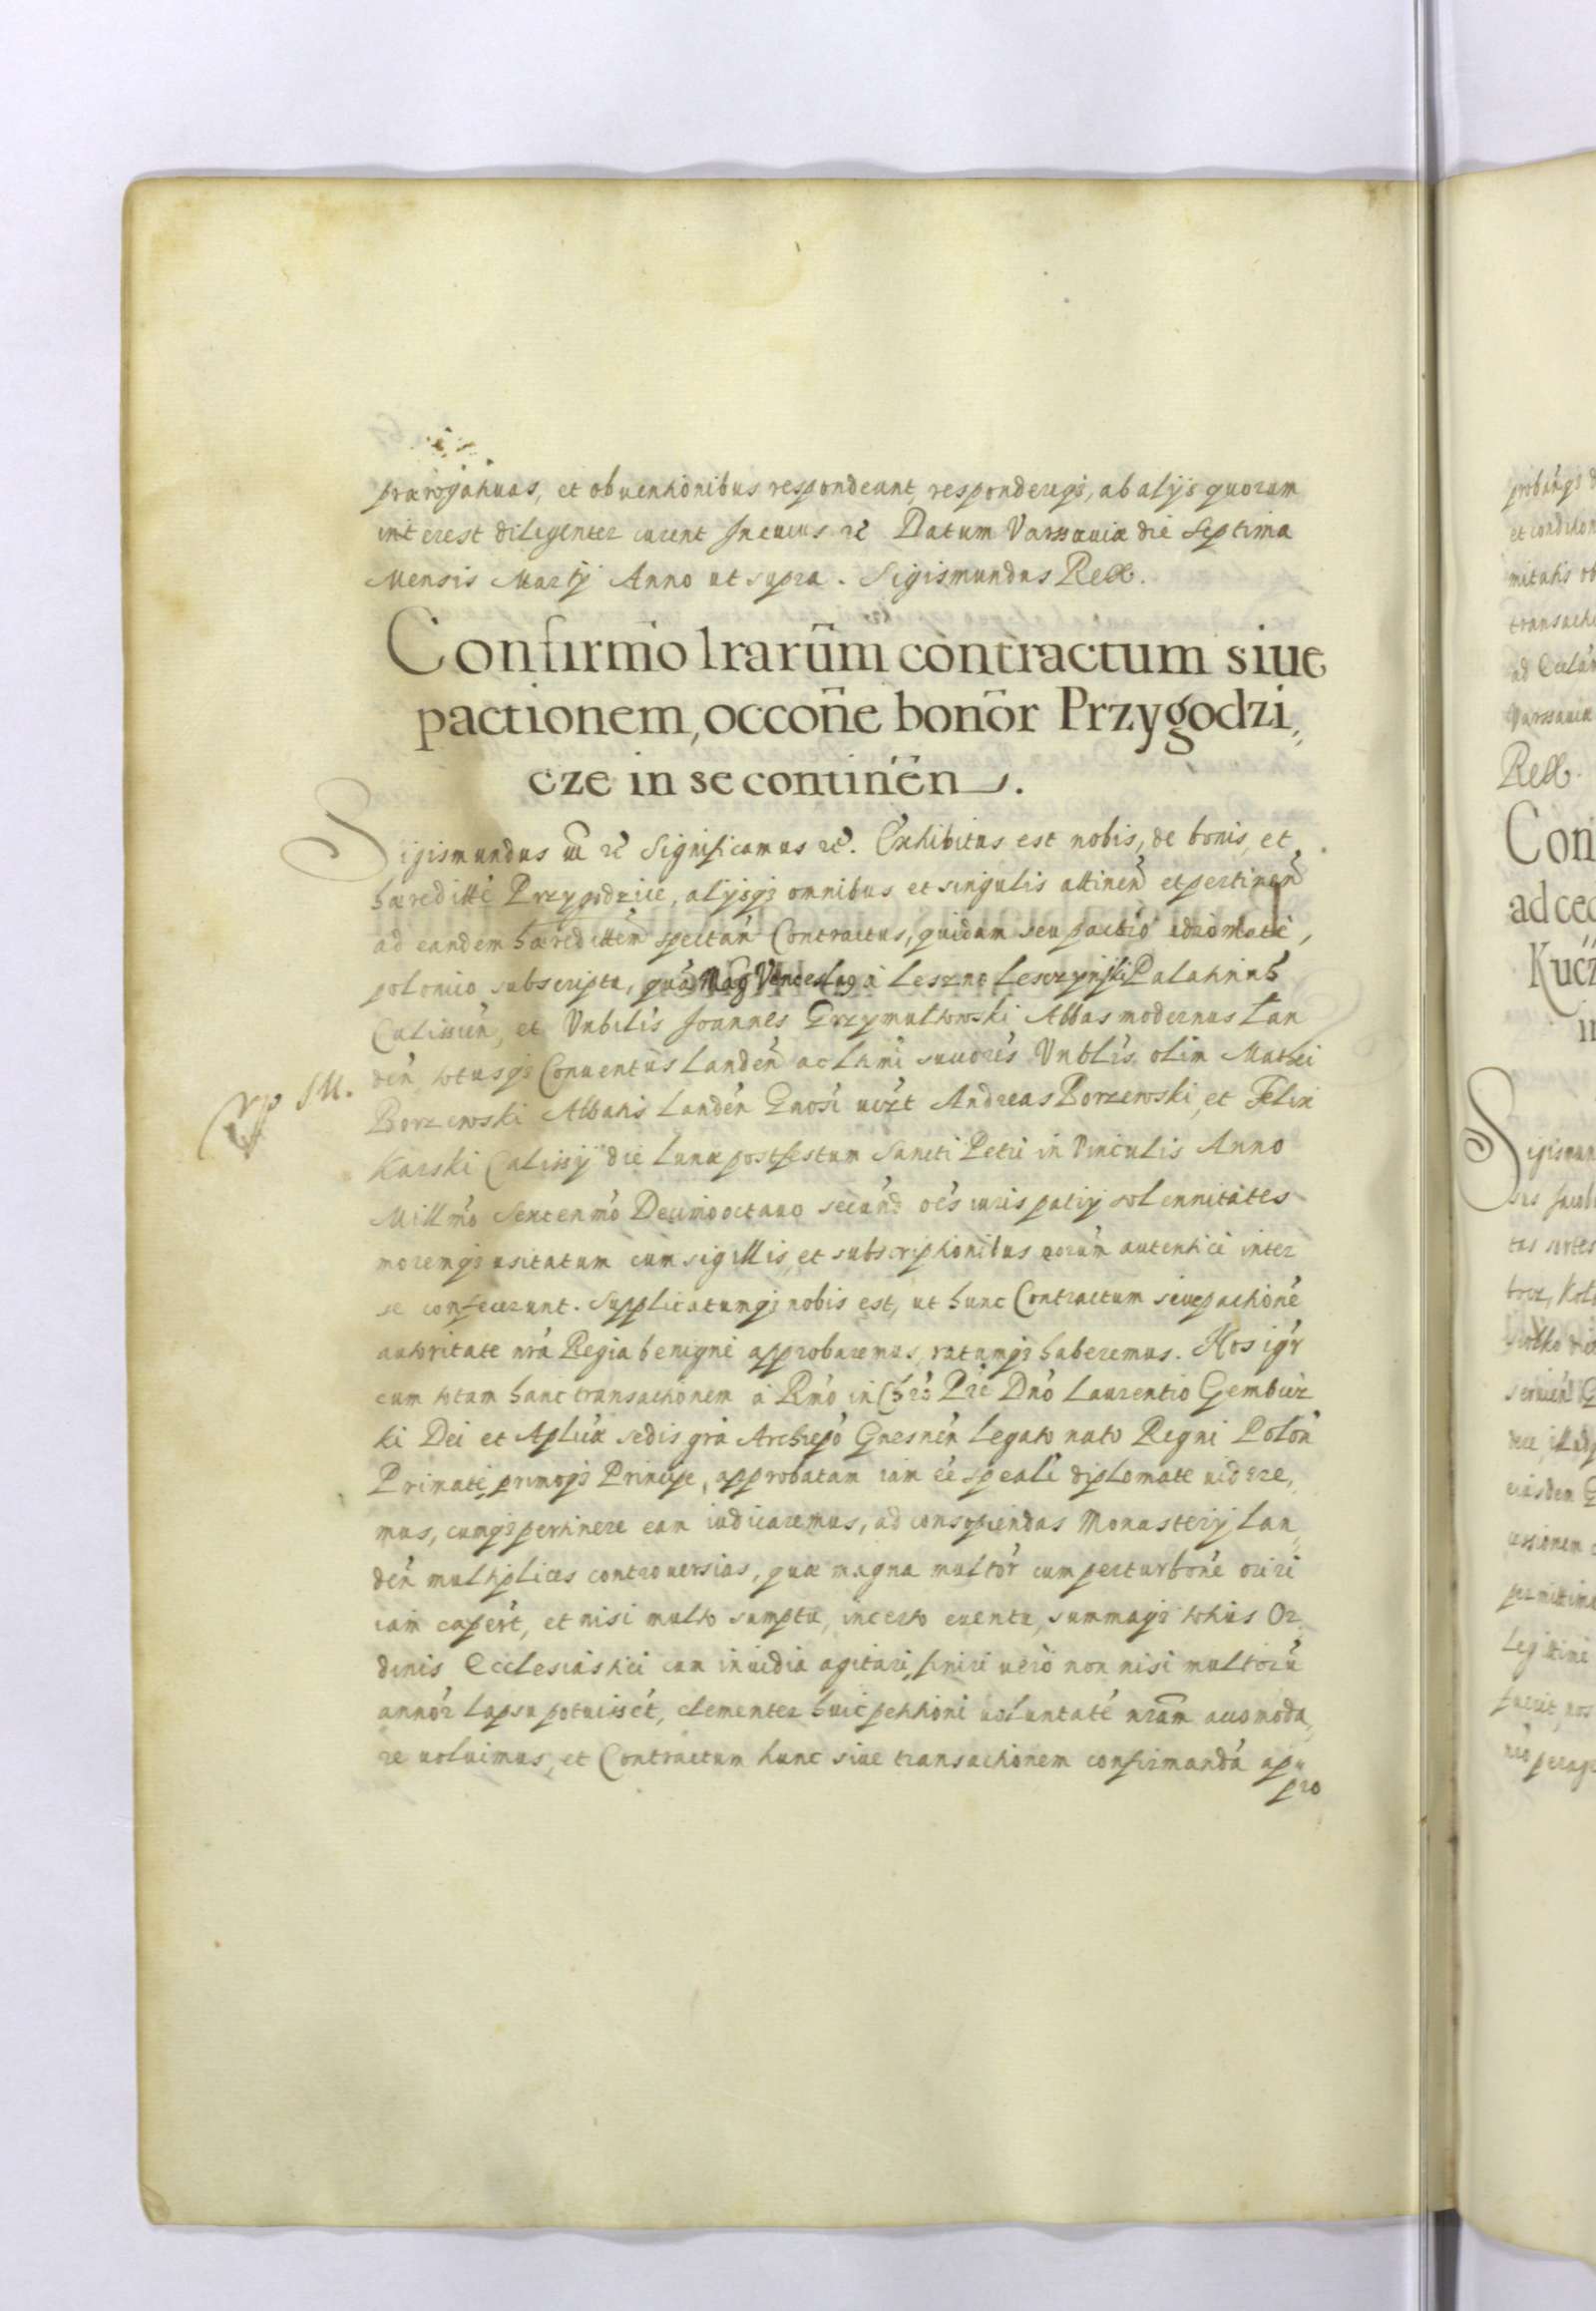 prærogatiuas, et obuentionibus respondeant, responderiqз, ab alijs quorum
interest diligenter curent In cuius rẽ Datum Varssauiæ die Septima
Mensis Martij Anno ut supra. Sigismundus Rex.
Confirm̃o lrarũm contractum siue
pactionem, occon̄e bonōr Przygodzi,,
cze in se continēn.
Sigismundus III rẽ Significamus rẽ. Exhibitus est nobis, de bonis, et
hæreditte Przygodzice, alijsqз omnibus et singulis attineñ et pertineñ
ad eandem hæredittem spectań Contractus, quidam seu pactio idiomate,
polonico subscripta, quá Mag Venceslaq à Leszno Lesczyński Palatinus
Calissień, et Vnbilis Joannes Grzymultowski Abbas modernus Lan
deń totusqз Conuentus Landeń ac ltimi succores Vnblis olim Mathei
Borzewski Abbatis Landeń Gnosi uizt Andreas Borzewski, et Felix
SM.
Karski Calissij die lunæ post festum Sancti Petri in Vinculis Anno
Millmó Sexcenmó Decimooctauo secund oés iuris patrij solennitates
moremqз usitatum cum sigillis, et subscriptionibus eorum autentici inter
se confecerunt. Supplicatumqз nobis est, ut hunc Contractum siue pactioné
autoritate nrá Regia benigné approbaremus, ratumqз haberemus. Nos igr
cum totam hanc transactionem à Rmó in Chro Pré Dnó Laurentio Gembicz
ki Dei et Apliæ sedis grá Archiepó Gnesneń Legato nato Regni Polon
Primate, primoqз Principe, approbatam iam eé speali diplomate uidere,,
mus, cumqз pertinere eam iudicaremus, ad consopiendas Monasterij Lan,,
deń multiplices controuersias, quæ magna multór cum perturboné oriri
iam cæpert, et nisi multo sumptu, incerto euentu, summaqз totius Or
dinis Ecclesiastici cum inuidia agitari, finiri uero non nisi multorú
annór lapsu potuissét, clementer huic petitioni uoluntaté nram accomoda,,
re uoluimus, et Contractum hunc siue transactionem confirmandá ap,,
pro
Rex.
Con
Kucz